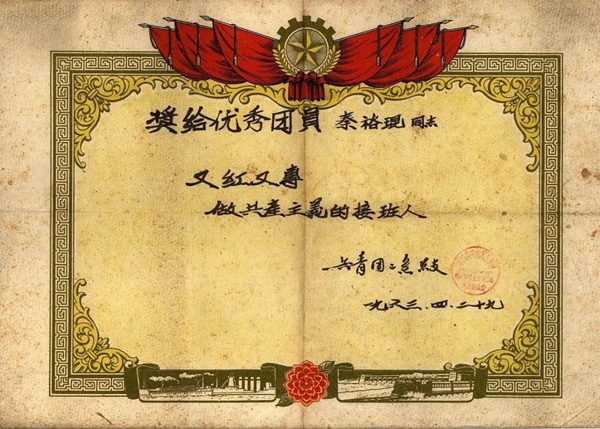 奬给优秀团員 秦裕琨 同志
又红又專
做共產主義的接班人
共青团工
一九六三.四.二十九